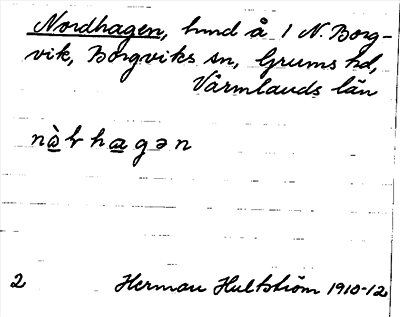 Nordhagen, hmd å 1 N. Borg-
vik, Borgviks sn, Grums hd,
Värmlands län
nò̲ɽha̲gən
2 Herman Hultström 1910-12